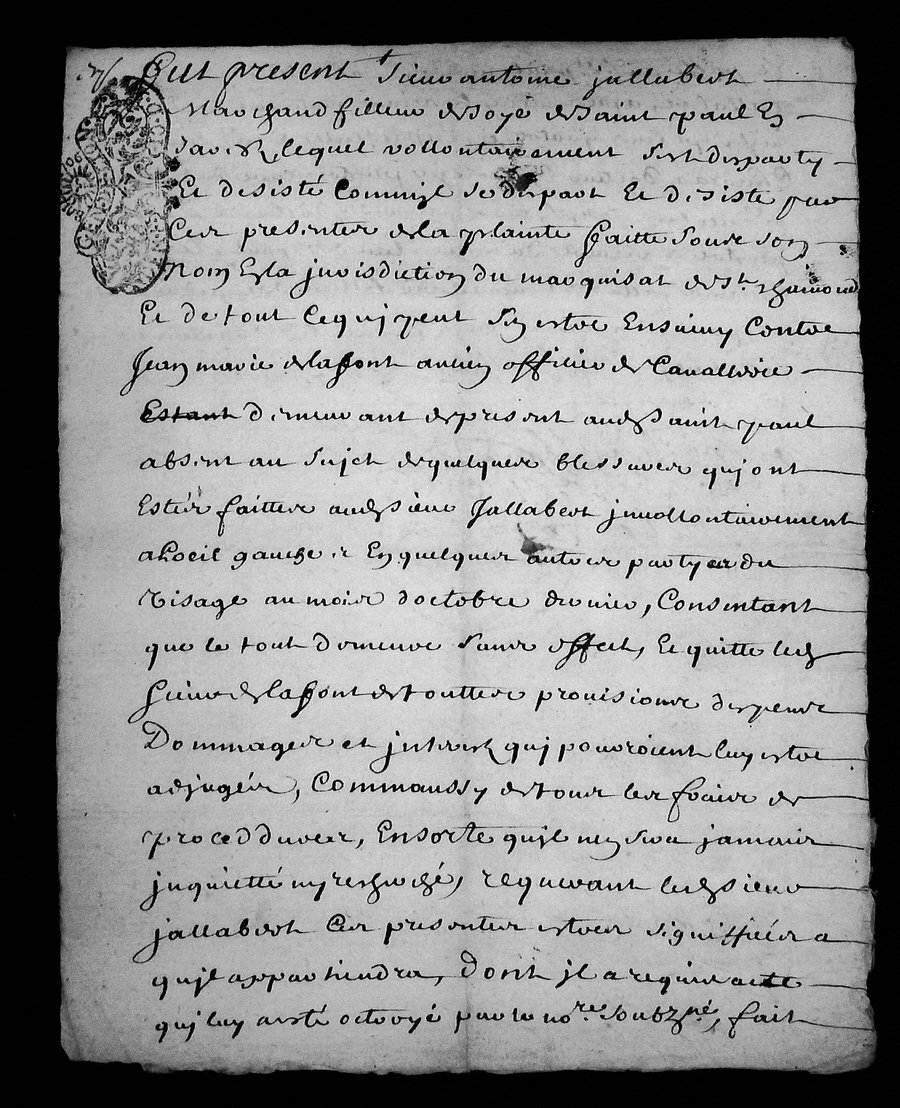 Fut present Sieur antoine jallabert
Marchand filleur de soye de saint paul En
Jarez, lequel vollontairement sest desparty
Et desisté Comme il se despart Et desiste par
Ces presentes de la plainte faitte sous son
nom En la jurisdiction du marquisat de St. chamond
Et de tout ce qui peut sen estre Ensuivy Contre
Jean marie de lafont ancien officier de Cavallerie
Estant demeurant de present aud. saint paul
absent au sujet de quelques blessures qui ont
Estés faittes aud. sieur Jallabert jnvollontairement
a Loeil gauche et En quelques autres partyes du
visage au mois doctobre dernier, Consentant
que le tout demeure sans effect, Et quitte led.
Sieur de lafont de touttes provisions despens
Dommages et jnterestz qui pouroient luy estre
adjugés, Comm aussy de tous les fraix de
proceddures, Ensorte quil nen sera jamais
jnquietté ny reserché, requerant led. sieur
jallabert Ces presentes estres signiffiées a
quil appartiendra, Dont jl a requis acte
qui luy a esté octroyé par le no.re soubz.né, fait